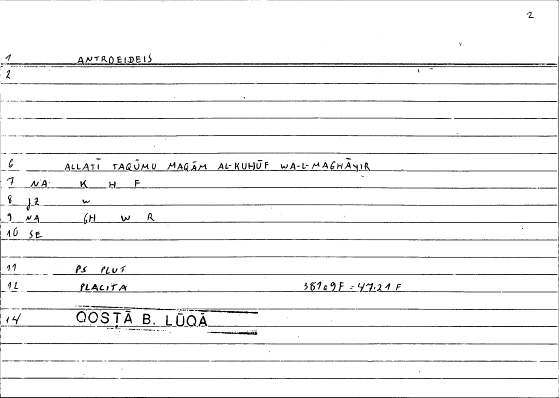 2
1 ANTROEIDEIS
2
6 ALLATĪ TAQŪMU MAQĀM AL-KUHŪF WA-L-MAGHĀYIR
7 NA K H F
8 J2 W
9 NA GH W R
10 SE
11 PS PLUT
12 PLACITA 381.9F = 47.21 F
14 QOSṬĀ B. LŪQĀ